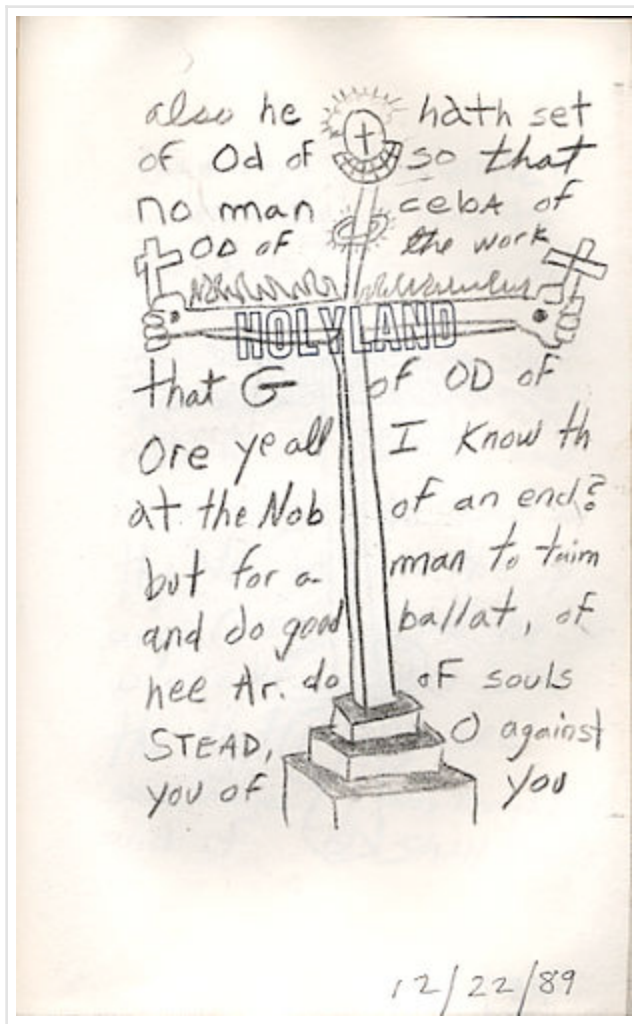 also he hath set
of Od of so that
no man cebA of
OD of the work
HOLYLAND
that G of OD of
Ore ye all I Know th
at the Nob of an end?
but for a man to taim
and do good ballat, of
hee Ar. do of souls
STEAD, O against
you of you
12/22/89